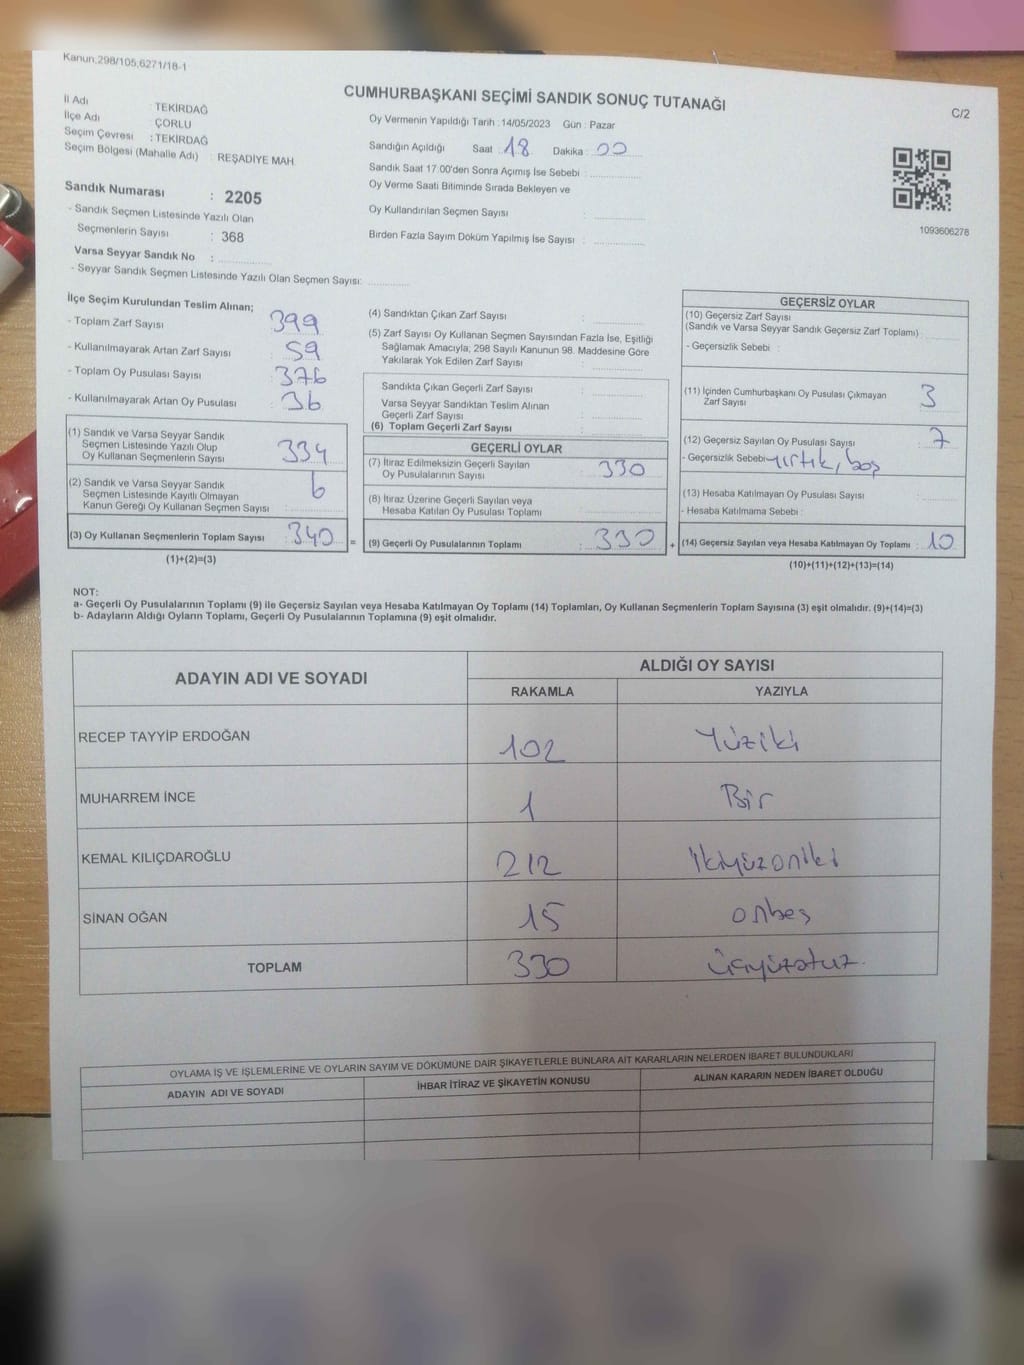 Kanun.298/105,6271/18-1
CUMHURBAŞKANI SEÇİMİ SANDIK SONUÇ TUTANAĞI
C/2
İl Adı : TEKİRDAĞ
İlçe Adı : ÇORLU
Seçim Çevresi : TEKİRDAĞ
Seçim Bölgesi (Mahalle Adı) : REŞADİYE MAH.
Sandık Numarası : 2205
- Sandık Seçmen Listesinde Yazılı Olan
Seçmenlerin Sayısı : 368
Varsa Seyyar Sandık No :
- Seyyar Sandık Seçmen Listesinde Yazılı Olan Seçmen Sayısı:
Oy Vermenin Yapıldığı Tarih : 14/05/2023 Gün : Pazar
Sandığın Açıldığı Saat : 18 Dakika : 00
Sandık Saat 17:00'den Sonra Açımış İse Sebebi :
Oy Verme Saati Bitiminde Sırada Bekleyen ve
Oy Kullandırılan Seçmen Sayısı :
Birden Fazla Sayım Döküm Yapılmış İse Sayısı :
1093606278
İlçe Seçim Kurulundan Teslim Alınan;
- Toplam Zarf Sayısı : 399
- Kullanılmayarak Artan Zarf Sayısı : 59
- Toplam Oy Pusulası Sayısı : 376
- Kullanılmayarak Artan Oy Pusulası : 36
(1) Sandık ve Varsa Seyyar Sandık
Seçmen Listesinde Yazılı Olup
Oy Kullanan Seçmenlerin Sayısı : 334
(2) Sandık ve Varsa Seyyar Sandık
Seçmen Listesinde Kayıtlı Olmayan
Kanun Gereği Oy Kullanan Seçmen Sayısı : 6
(3) Oy Kullanan Seçmenlerin Toplam Sayısı : 340 =
(1)+(2)=(3)
(4) Sandıktan Çıkan Zarf Sayısı :
(5) Zarf Sayısı Oy Kullanan Seçmen Sayısından Fazla İse, Eşitliği
Sağlamak Amacıyla; 298 Sayılı Kanunun 98. Maddesine Göre
Yakılarak Yok Edilen Zarf Sayısı :
Sandıkta Çıkan Geçerli Zarf Sayısı :
Varsa Seyyar Sandıktan Teslim Alınan
Geçerli Zarf Sayısı :
(6) Toplam Geçerli Zarf Sayısı :
GEÇERLİ OYLAR
(7) İtiraz Edilmeksizin Geçerli Sayılan
Oy Pusulalarının Sayısı : 330
(8) İtiraz Üzerine Geçerli Sayılan veya
Hesaba Katılan Oy Pusulası Toplamı :
(9) Geçerli Oy Pusulalarının Toplamı : 330 +
GEÇERSİZ OYLAR
(10) Geçersiz Zarf Sayısı
(Sandık ve Varsa Seyyar Sandık Geçersiz Zarf Toplamı) :
- Geçersizlik Sebebi :
(11) İçinden Cumhurbaşkanı Oy Pusulası Çıkmayan
Zarf Sayısı : 3
(12) Geçersiz Sayılan Oy Pusulası Sayısı : 7
- Geçersizlik Sebebi : yırtık, boş
(13) Hesaba Katılmayan Oy Pusulası Sayısı :
- Hesaba Katılmama Sebebi :
(14) Geçersiz Sayılan veya Hesaba Katılmayan Oy Toplamı : 10
(10)+(11)+(12)+(13)=(14)
NOT:
a- Geçerli Oy Pusulalarının Toplamı (9) ile Geçersiz Sayılan veya Hesaba Katılmayan Oy Toplamı (14) Toplamları, Oy Kullanan Seçmenlerin Toplam Sayısına (3) eşit olmalıdır. (9)+(14)=(3)
b- Adayların Aldığı Oyların Toplamı, Geçerli Oy Pusulalarının Toplamına (9) eşit olmalıdır.
ADAYIN ADI VE SOYADI
ALDIĞI OY SAYISI
RAKAMLA YAZIYLA
RECEP TAYYİP ERDOĞAN 102 Yüziki
MUHARREM İNCE 1 Bir
KEMAL KILIÇDAROĞLU 212 ikiyüzoniki
SİNAN OĞAN 15 onbeş
TOPLAM 330 üçyüzotuz.
OYLAMA İŞ VE İŞLEMLERİNE VE OYLARIN SAYIM VE DÖKÜMÜNE DAİR ŞİKAYETLERLE BUNLARA AİT KARARLARIN NELERDEN İBARET BULUNDUKLARI
ADAYIN ADI VE SOYADI İHBAR İTİRAZ VE ŞİKAYETİN KONUSU ALINAN KARARIN NEDEN İBARET OLDUĞU